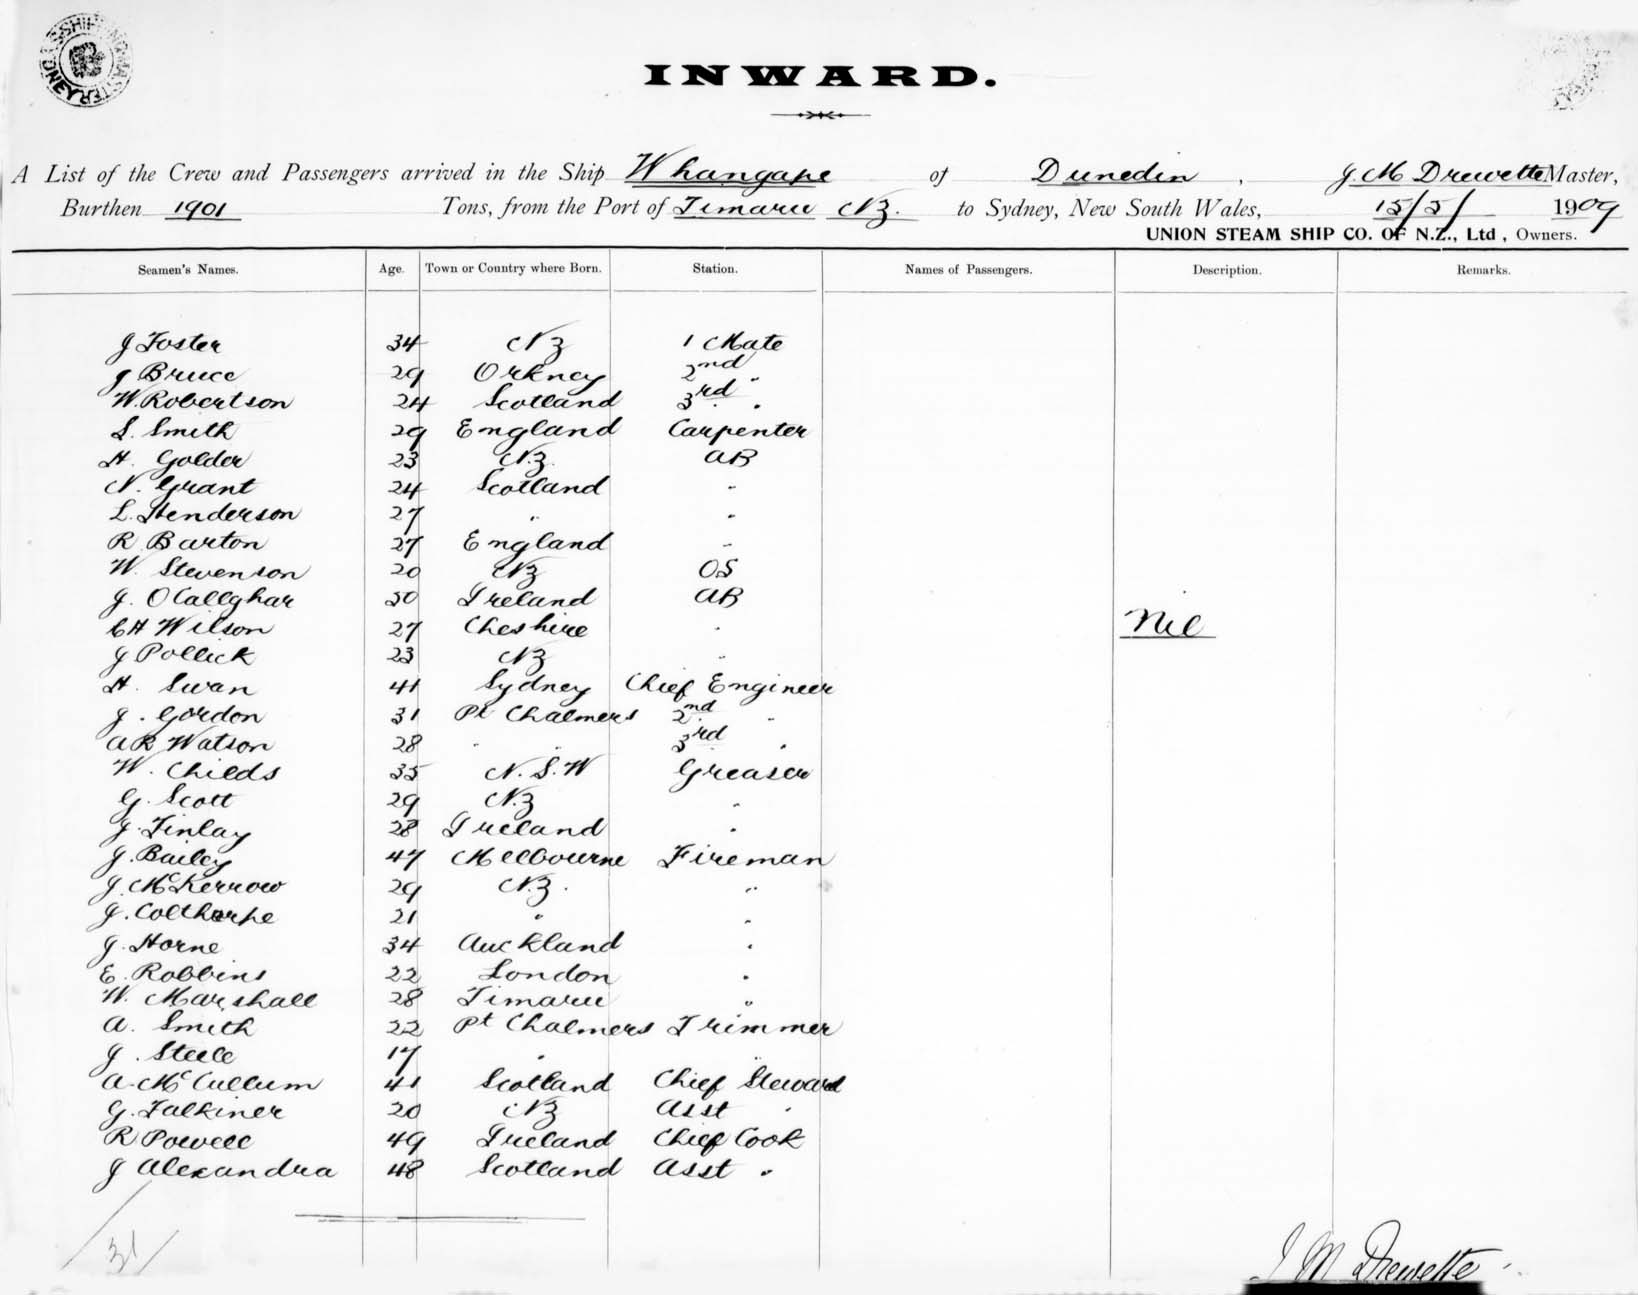 SHIPPING MASTER
SYDNEY
INWARD.
A List of the Crew and Passengers arrived in the Ship Whangape of Dunedin, J M Drewette Master,
Burthen 1901 Tons, from the Port of Timaru NZ. to Sydney, New South Wales, 15/5/ 1909
UNION STEAM SHIP CO. OF N.Z., Ltd, Owners.
Seamen's Names. Age. Town or Country where Born. Station. Names of Passengers. Description. Remarks.
J Foster 34 NZ 1 Mate
J Bruce 29 Orkney 2nd "
W. Robertson 24 Scotland 3rd "
S. Smith 29 England Carpenter
H. Golder 23 N.Z. AB
N. Grant 24 Scotland "
L. Henderson 27 " "
R Barton 27 England "
W. Stevenson 20 NZ OS
J. OCallghar 50 Ireland AB
CH Wilson 27 Cheshire " Nil
J Pollick 23 NZ "
H. Swan 41 Sydney Chief Engineer
J. Gordon 31 Pt Chalmers 2nd "
AR Watson 28 " " 3rd "
W. Childs 35 N.S.W Greaser
G. Scott 29 N.Z "
J. Finlay 28 Ireland "
J. Bailey 47 Melbourne Fireman
J. McKerrow 29 N.Z. "
J. Colthorpe 21 " "
J. Horne 34 Auckland "
E. Robbins 22 London "
W. Marshall 28 Timaru "
A. Smith 22 Pt Chalmers Trimmer
J. Steele 17 " "
A. McCullum 41 Scotland Chief Steward
G. Falkiner 20 NZ Asst "
R Powell 49 Ireland Chief Cook
J Alexandra 48 Scotland Asst "
31
J M Drewette